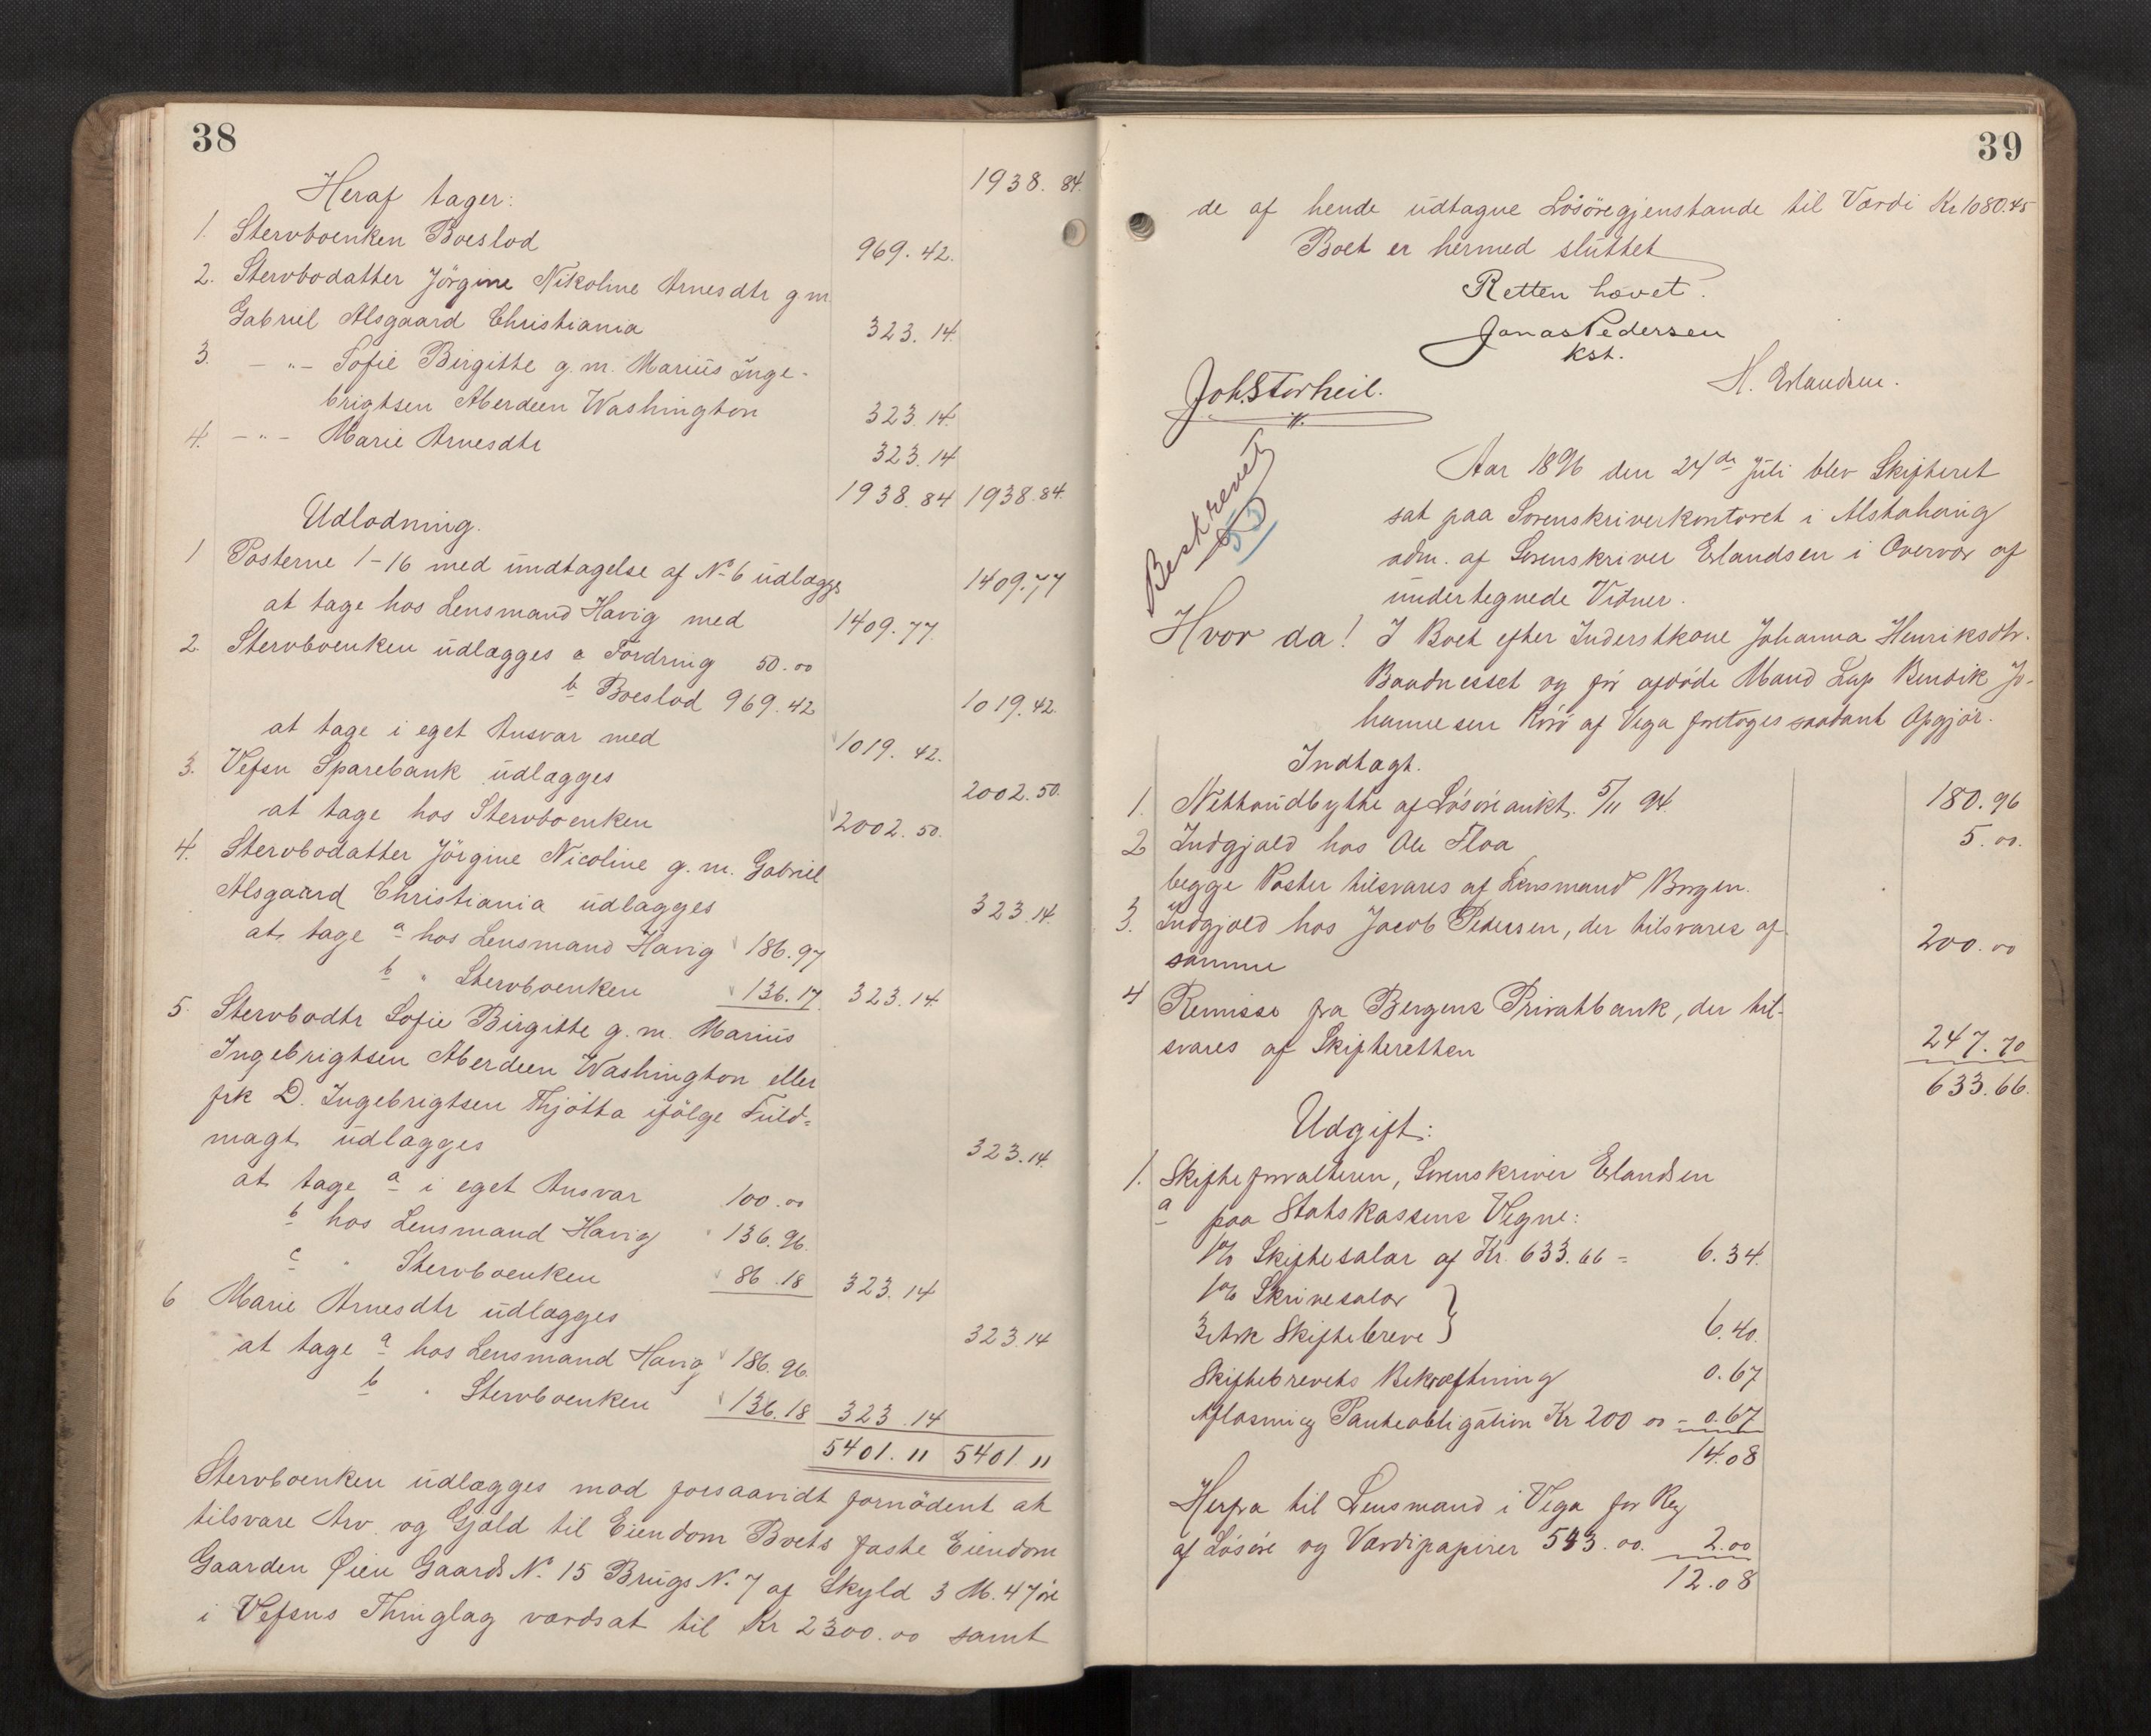 38
1938. 84.
Heraf tager:
1. Stervboenken Boeslod 969. 42.
2. Stervbodatter Jörgine Nikoline Arnesdtr g m.
Gabriel Alsgaard Christiania 323. 14.
3. — " — Sofie Birgitte g. m. Marius Inge-
brigtsen Aberdeen Washington 323. 14.
4. — " — Marie Arnesdtr 323. 14
1938. 84 1938. 84.
Udlodning.
1 Posterne 1-16 med undtagelse af No 6 udlægges 1409.77
at tage hos Lensmand Havig med 1409. 77.
2. Stervboenken udlægges a Fordring 50. 00
b Boeslod 969. 42 1019. 42.
at tage i eget Ansvar med 1019. 42.
3. Vefsn Sparebank udlægges 2002. 50.
at tage hos Stervboenken 2002. 50.
4. Stervbodatter Jörgine Nicoline g. m. Gabriel
Alsgaard Christiania udlægges 323. 14.
at tage a hos Lensmand Havig 186. 97
b " Stervboenken 136. 17. 323. 14.
5. Stervbodtr Sofie Birgitte g. m. Marius
Ingebrigtsen Aberdeen Washington eller
frk D. Ingebrigtsen Thjötta ifölge Fuld-
magt udlægges 323. 14.
at tage a i eget Ansvar 100. 00
b hos Lensmand Havig 136. 96.
c " Stervboenken 86. 18 323. 14
6 Marie Arnesdtr udlægges 323. 14
at tage a hos Lensmand Havig 186. 96.
b " Stervboenken 136. 18 323. 14
5401. 11 5401 11
Stervboenken udlægges mod forsaavidt fornödent at
tilsvare Arv og Gjæld til Eiendom Boets faste Eiendom
Gaarden Øien Gaards No. 15 Brugs No. 7 af Skyld 3 M. 47 öre
i Vefsns Thinglag værdsat til Kr 2300. 00 samt
39
de af hende udtagne Lösöregjenstande til Værdi Kr 1080.45
Boet er hermed sluttet
Retten hævet.
Jonas Pedersen
kst.
H. Erlandsen.
Joh. Storheil.
Beskrevet
53
Aar 1896 den 24de Juli blev Skifteret
sat paa Sorenskriverkontoret i Alstahaug
adm. af Sorenskriver Erlandsen i Overvær af
undertegnede Vidner.
Hvor da! I Boet efter Inderstkone Johanna Henriksdtr.
Baadnesset og för afdöde Mand Lap Bendik Jo-
hannesen Rörö af Vega foretoges saadant Opgjör.
Indtægt.
1. Nettoudbytte af Lösöreaukt. 5/11 94. 180. 96
2 Indgjæld hos Ole Floa 5. 00.
begge Poster tilsvares af Lensmand Borgen.
3. Indgjæld hos Jacob Pedersen, der tilsvares af
samme 200. 00
4 Remisse fra Bergens Privatbank, der til-
svares af Skifteretten 247. 70
633. 66.
Udgift:
1. Skifteforvalteren, Sorenskriver Erlandsen
a paa Statskassens Vegne:
1% Skiftesalær af Kr. 633. 66 = 6. 34.
1% Skrivesalær
3 Ark Skiftebreve } 6. 40.
Skiftebrevets Bekræftning 0. 67
Aflæsning Panteobligation Kr 200 00 - 0. 67
14. 08
Herfra til Lensmand i Vega for Reg
af Lösöre og Værdipapirer 543. 00. 2. 00
12. 08